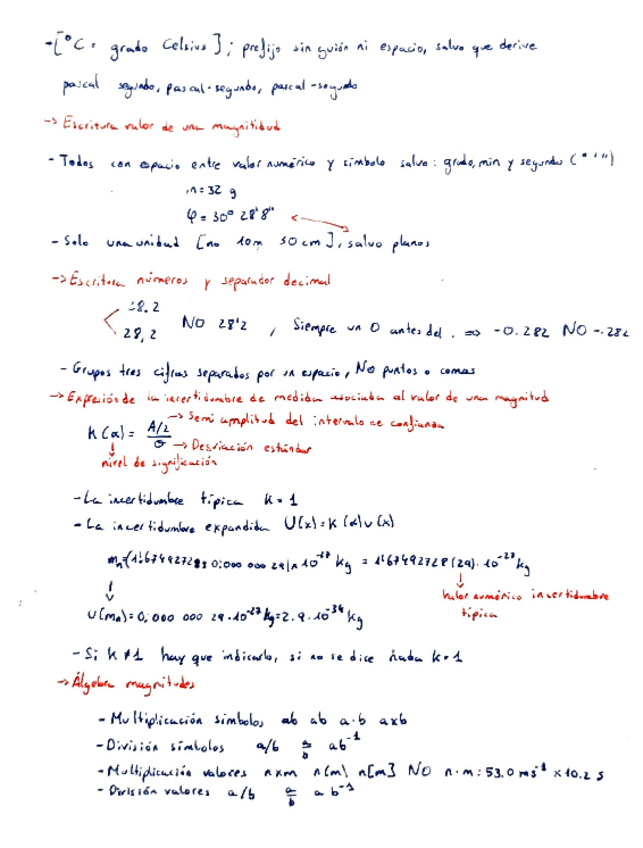 -[°C = grado Celsius]; prefijo sin guión ni espacio, salvo que derive
pascal segundo, pascal·segundo, pascal-segundo
-> Escritura valor de una magnitud
- Todos con espacio entre valor numérico y símbolo salvo: grado, min y segundo (° ' ")
m = 32 g
φ = 30° 28' 8"
- Solo una unidad [no 10m 30cm], salvo planos
-> Escritura números y separador decimal
28.2
28,2 NO 28'2 , Siempre un 0 antes del . => -0.282 NO -.282
- Grupos tres cifras separados por un espacio, NO puntos o comas
-> Expresión de la incertidumbre de medida asociada al valor de una magnitud
-> Semi amplitud del intervalo de confianza
k(α) = A/2 / σ -> Desviación estándar
nivel de significación
- La incertidumbre típica k = 1
- La incertidumbre expandida U(x) = k(α)u(x)
kg = 1'67492728(29)·10^-27 kg
valor numérico incertidumbre
típica
u(mₙ) = 0,000 000 29·10^-27 kg = 2.9·10^-34 kg
- Si k ≠ 1 hay que indicarlo, si no se dice nada k = 1
-> Álgebra magnitudes
- Multiplicación símbolos ab ab a·b axb
- División símbolos a/b a/b ab^-1
- Multiplicación valores nxm n(m) n[m] NO n·m: 53.0 ms^-1 x 10.2 s
- División valores a/b a/b a b^-1